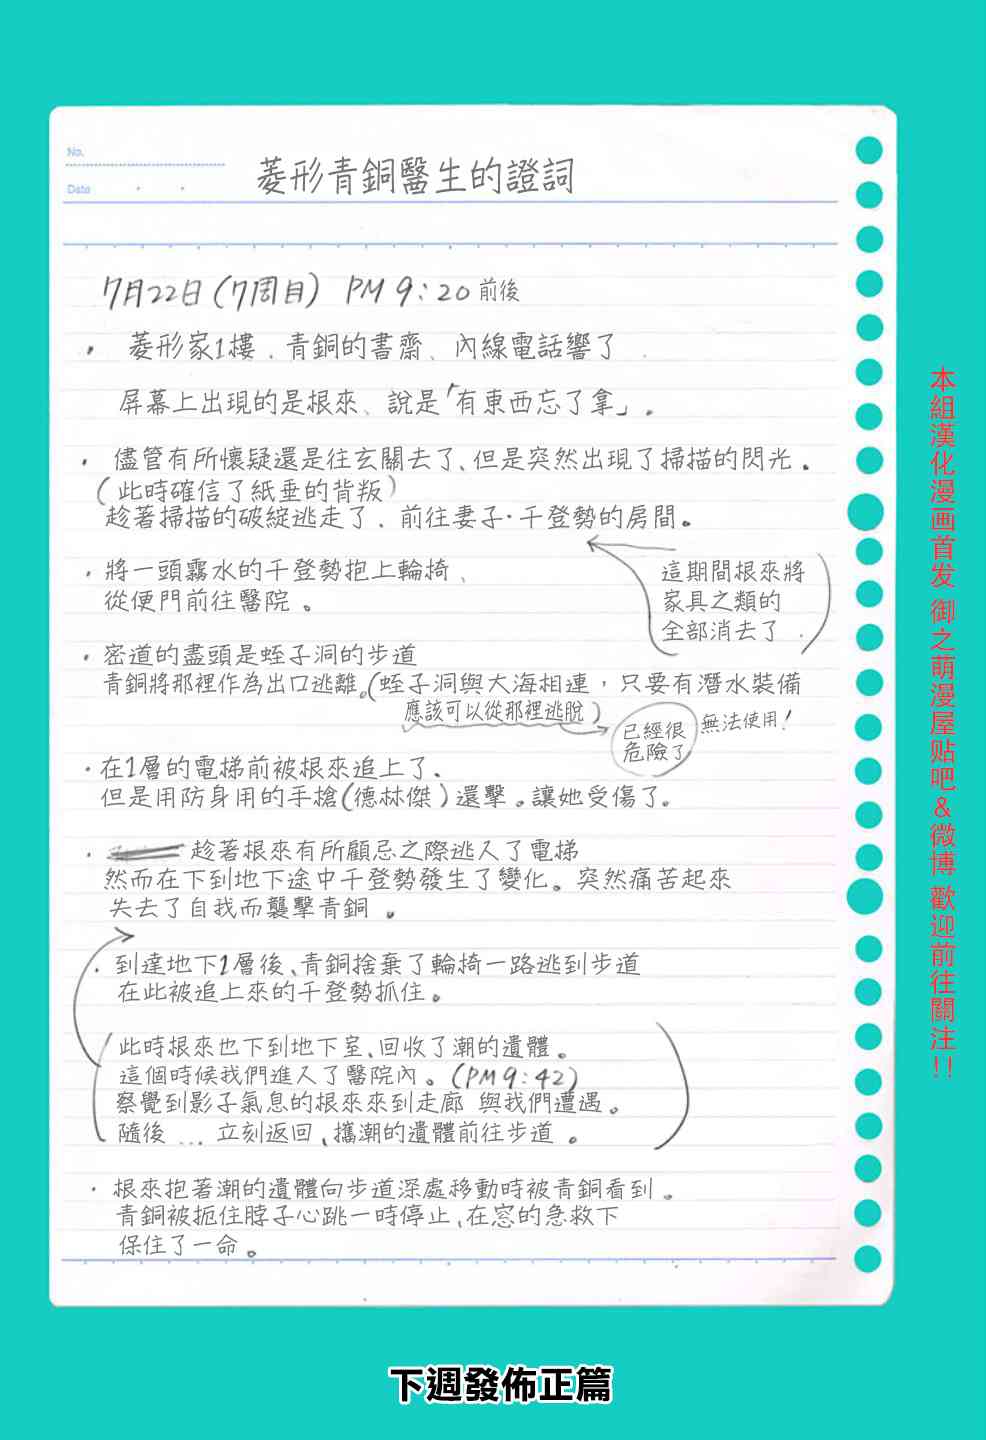 No.
Date
菱形青銅醫生的證詞
7月22日(7周目) PM 9:20前後
・ 菱形家1樓．青銅的書齋、內線電話響了．
屏幕上出現的是根來、說是「有東西忘了拿」。
・ 儘管有所懷疑還是往玄關去了、但是突然出現了掃描的閃光。
(此時確信了紙垂的背叛)
趁著掃描的破綻逃走了．前往妻子·千登勢的房間。
・將一頭霧水的千登勢抱上輪椅、
從便門前往醫院。
這期間根來將
家具之類的
全部消去了．
・密道的盡頭是蛭子洞的步道
青銅將那裡作為出口逃離。(蛭子洞與大海相連，只要有潛水裝備
應該可以從那裡逃脫)
已經很
危險了
無法使用!
・在1層的電梯前被根來追上了、
但是用防身用的手槍(德林傑)還擊。讓她受傷了。
・趁著根來有所顧忌之際逃入了電梯
然而在下到地下途中千登勢發生了變化。突然痛苦起來
失去了自我而襲擊青銅。
・到達地下1層後、青銅捨棄了輪椅一路逃到步道
在此被追上來的千登勢抓住。
此時根來也下到地下室、回收了潮的遺體。
這個時候我們進入了醫院內。(PM9:42)
察覺到影子氣息的根來來到走廊 與我們遭遇。
隨後...立刻返回、攜潮的遺體前往步道。
・根來抱著潮的遺體向步道深處移動時被青銅看到。
青銅被扼住脖子心跳一時停止、在窓的急救下
保住了一命。
本組漢化漫画首发 御之萌漫屋贴吧&微博 歡迎前往關注!!
下週發佈正篇